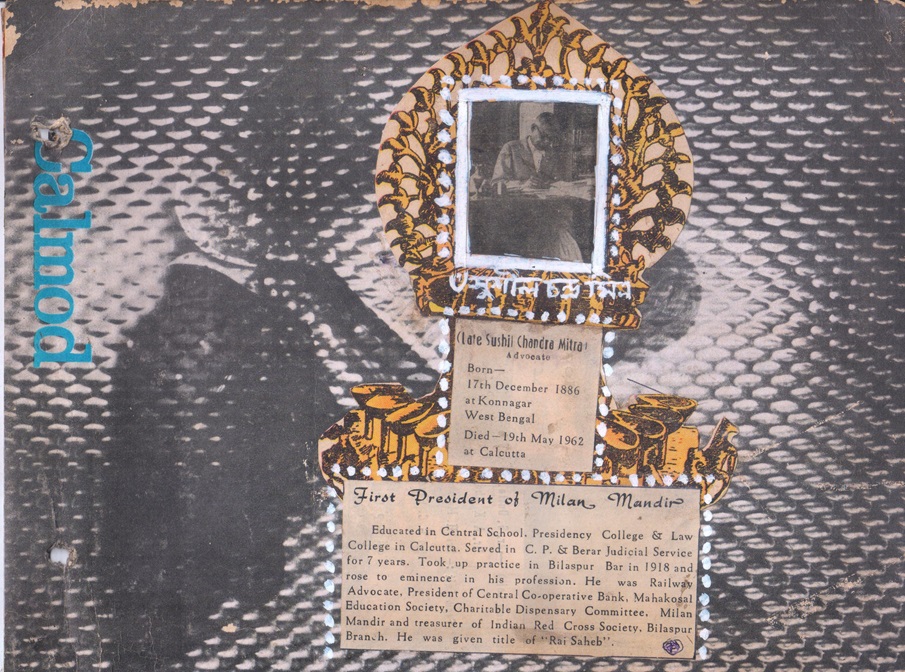 Calmod
৺সুশীল চন্দ্র মিত্র
(Late Sushil Chandra Mitra)
Advocate
Born—
17th December 1886
at Konnagar
West Bengal
Died—19th May 1962
at Calcutta
First President of Milan Mandir
Educated in Central School, Presidency College & Law
College in Calcutta. Served in C. P. & Berar Judicial Service
for 7 years. Took up practice in Bilaspur Bar in 1918 and
rose to eminence in his profession. He was Railway
Advocate, President of Central Co-operative Bank, Mahakosal
Education Society, Charitable Dispensary Committee, Milan
Mandir and treasurer of Indian Red Cross Society, Bilaspur
Branch. He was given title of "Rai Saheb".